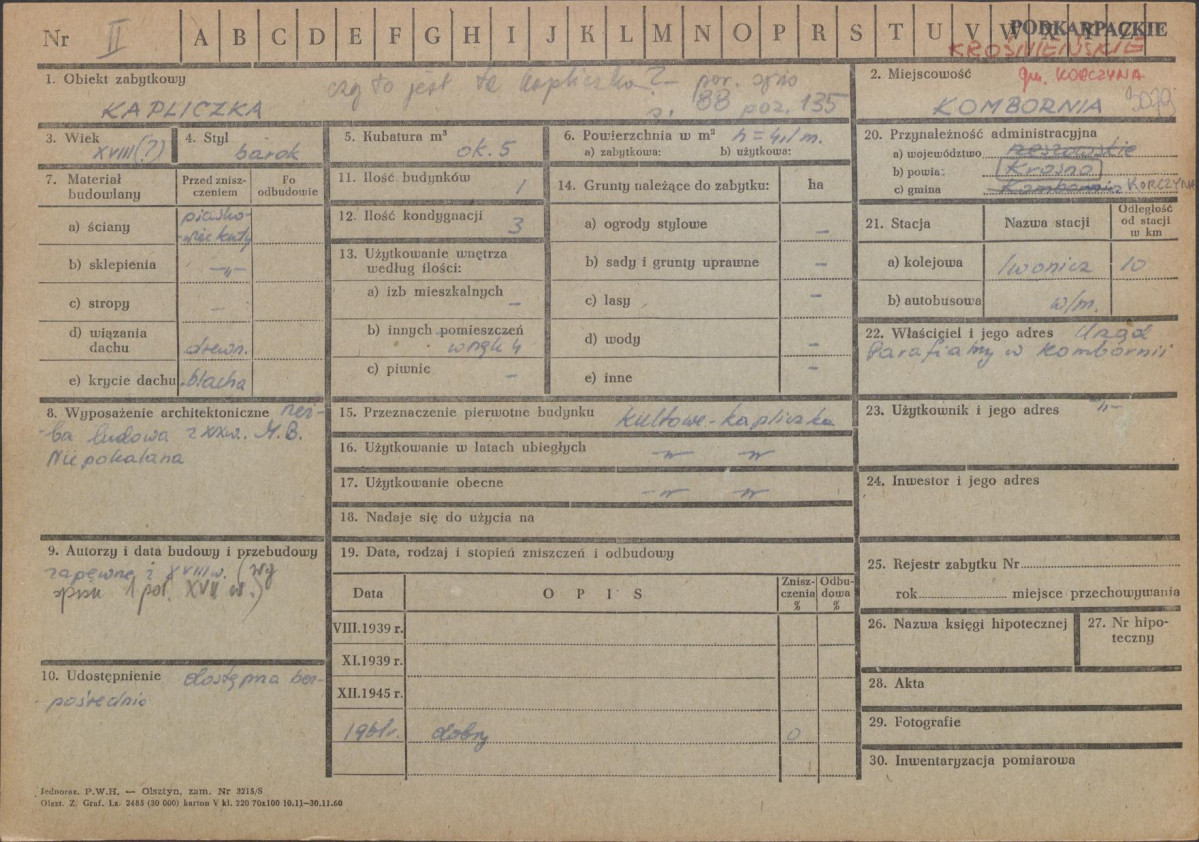 Nr II A B C D E F G H I J K L M N O P R S T U V W PODKARPACKIE
KROŚNIEŃSKIE
1. Obiekt zabytkowy
czy to jest ta kapliczka? – por. spis
s. 88 poz. 135
KAPLICZKA
2. Miejscowość gm. KORCZYNA
KOMBORNIA
3. Wiek
XVIII(?)
4. Styl
barok
5. Kubatura m³
ok. 5
6. Powierzchnia w m² h = 4,1 m.
a) zabytkowa: b) użytkowa:
20. Przynależność administracyjna
a) województwo rzeszowskie
b) powiat Krosno
c) gmina Kombornia KORCZYNA
7. Materiał budowlany
Przed zniszczeniem
Po odbudowie
a) ściany
piasko-
wiec kuty
b) sklepienia
–„–
c) stropy –
d) wiązania dachu drewn.
e) krycie dachu blacha
11. Ilość budynków 1
12. Ilość kondygnacji 3
13. Użytkowanie wnętrza według ilości:
a) izb mieszkalnych –
b) innych pomieszczeń
wnęk 4
c) piwnic –
14. Grunty należące do zabytku: ha
a) ogrody stylowe –
b) sady i grunty uprawne –
c) lasy –
d) wody –
e) inne –
21. Stacja
Nazwa stacji
Odległość od stacji w km
a) kolejowa Iwonicz 10
b) autobusowa w/m.
22. Właściciel i jego adres Urząd
Parafialny w Kombornii
8. Wyposażenie architektoniczne rzeź-
ba ludowa z XX w. M.B.
Niepokalana
15. Przeznaczenie pierwotne budynku kultowe - kapliczka
16. Użytkowanie w latach ubiegłych –„– –„–
17. Użytkowanie obecne –„– –„–
18. Nadaje się do użycia na
23. Użytkownik i jego adres –„–
24. Inwestor i jego adres
9. Autorzy i data budowy i przebudowy
zapewne z XVIII w. (wg
spisu 1 poł. XVII w.)
19. Data, rodzaj i stopień zniszczeń i odbudowy
Data
OPIS
Zniszczenia %
Odbudowa %
VIII.1939 r.
XI.1939 r.
XII.1945 r.
1961r. dobry 0
10. Udostępnienie dostępna bez-
pośrednio
25. Rejestr zabytku Nr
rok miejsce przechowywania
26. Nazwa księgi hipotecznej
27. Nr hipoteczny
28. Akta
29. Fotografie
30. Inwentaryzacja pomiarowa
Jednoraz. P.W.H. — Olsztyn, zam. Nr 3215/S
Olszt. Z. Graf. Lz. 2485 (30 000) karton V kl. 220 70x100 10.11—30.11.60